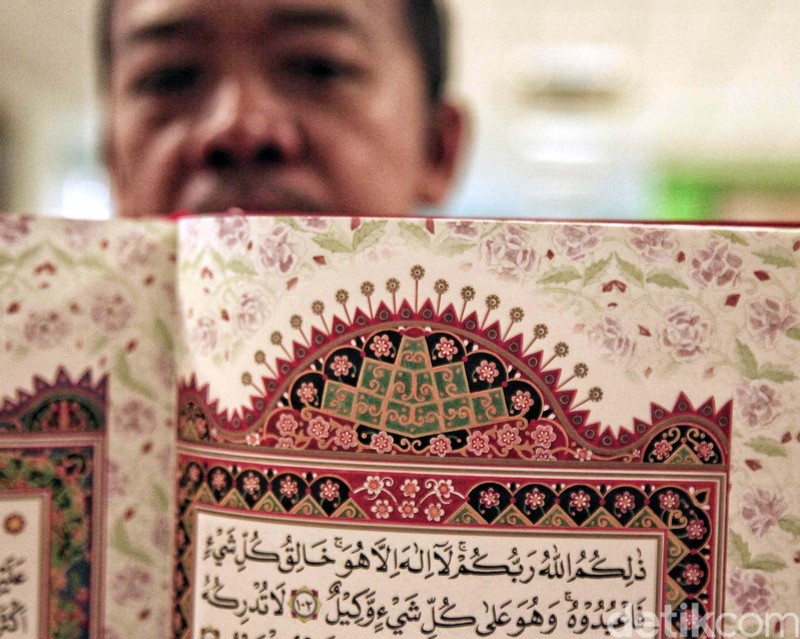 ذَٰلِكُمُ اللَّهُ رَبُّكُمْ ۖ لَا إِلَٰهَ إِلَّا هُوَ ۖ خَالِقُ كُلِّ شَيْءٍ
فَاعْبُدُوهُ ۚ وَهُوَ عَلَىٰ كُلِّ شَيْءٍ وَكِيلٌ ﴿١٠٢﴾ لَا تُدْرِكُهُ
detikcom